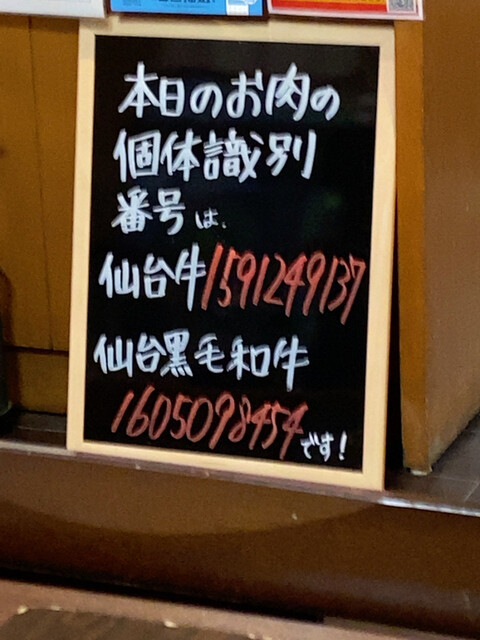 本日のお肉の
個体識別
番号は、
仙台牛1591249137
仙台黒毛和牛
1605098454です!